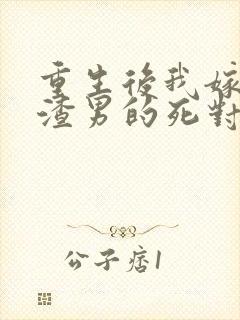 重生後我嫁
渣男的死對
公子痞1